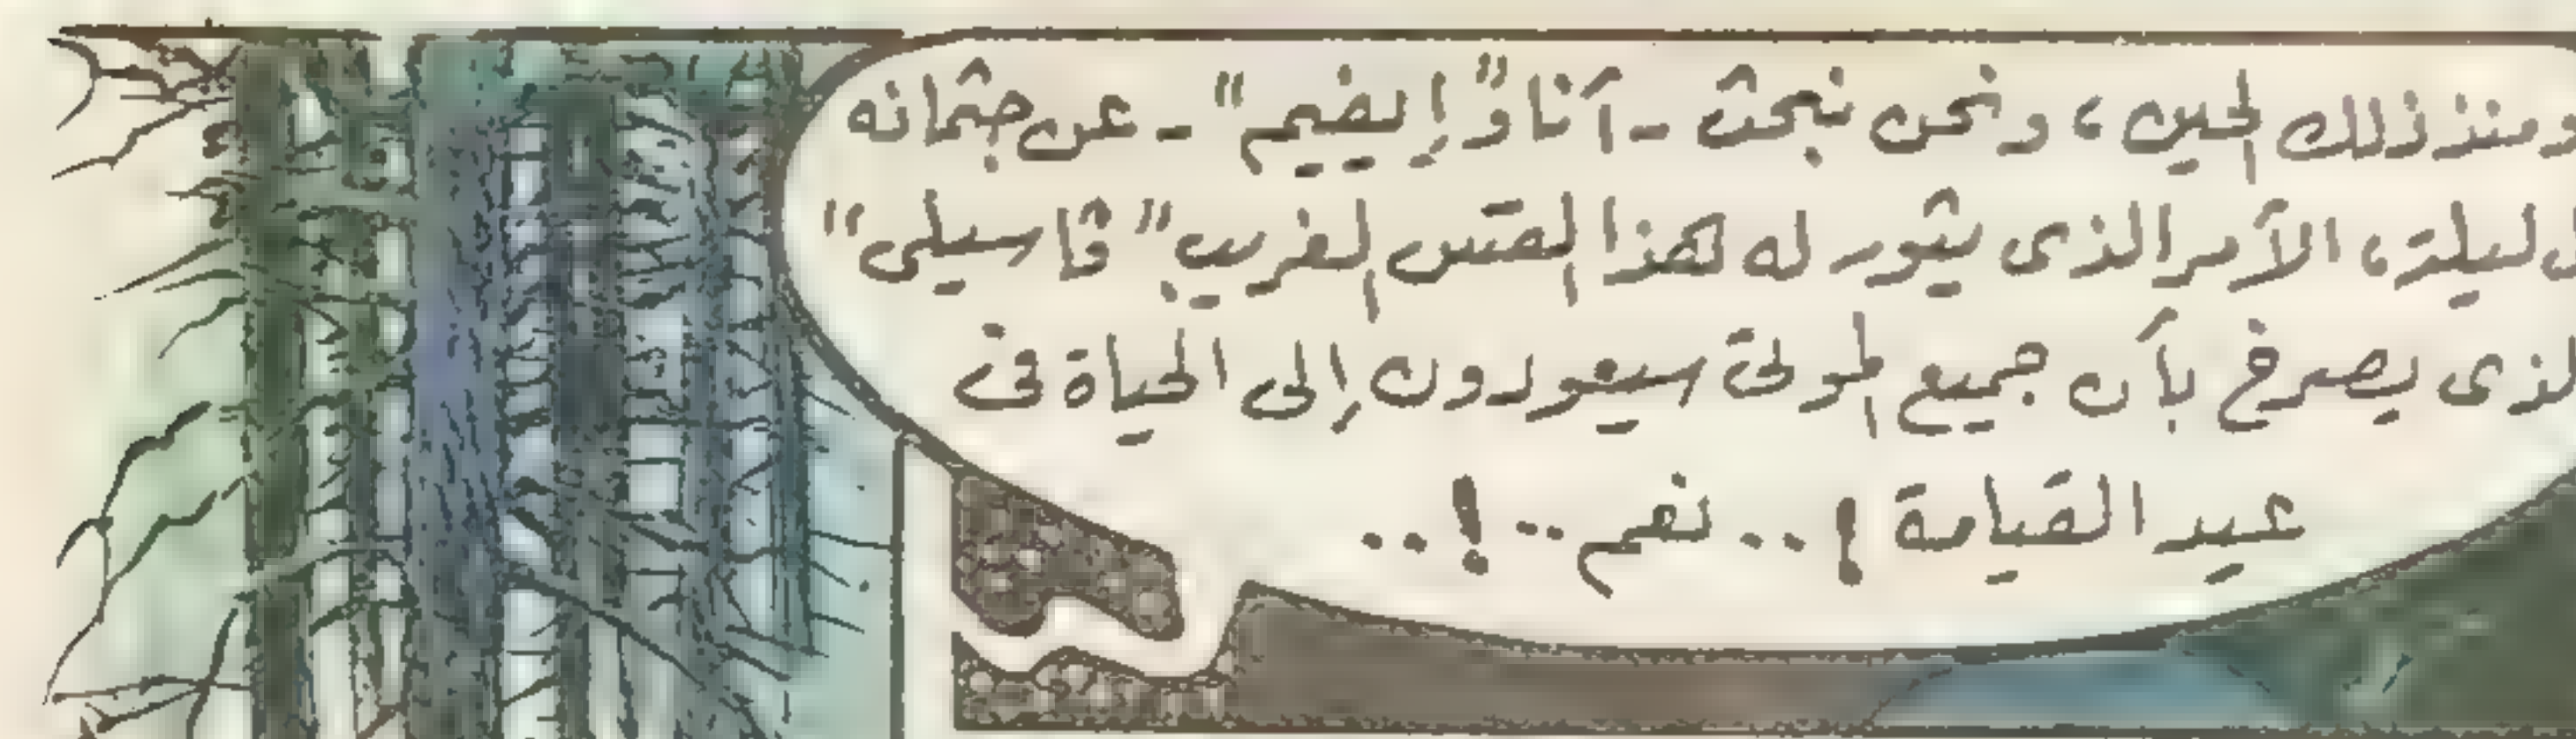 ومنذ ذلك الحين، ونحن نبحث - أنا و"إيفيم" - عن جثمانه
ليلة، الأمر الذى يثور له هذا القس الغريب "ڤاسيلى"
لذى يصرخ بأن جميع الموتى سيعودون إلى الحياة فى
عيد القيامة !.. نعم ..!..